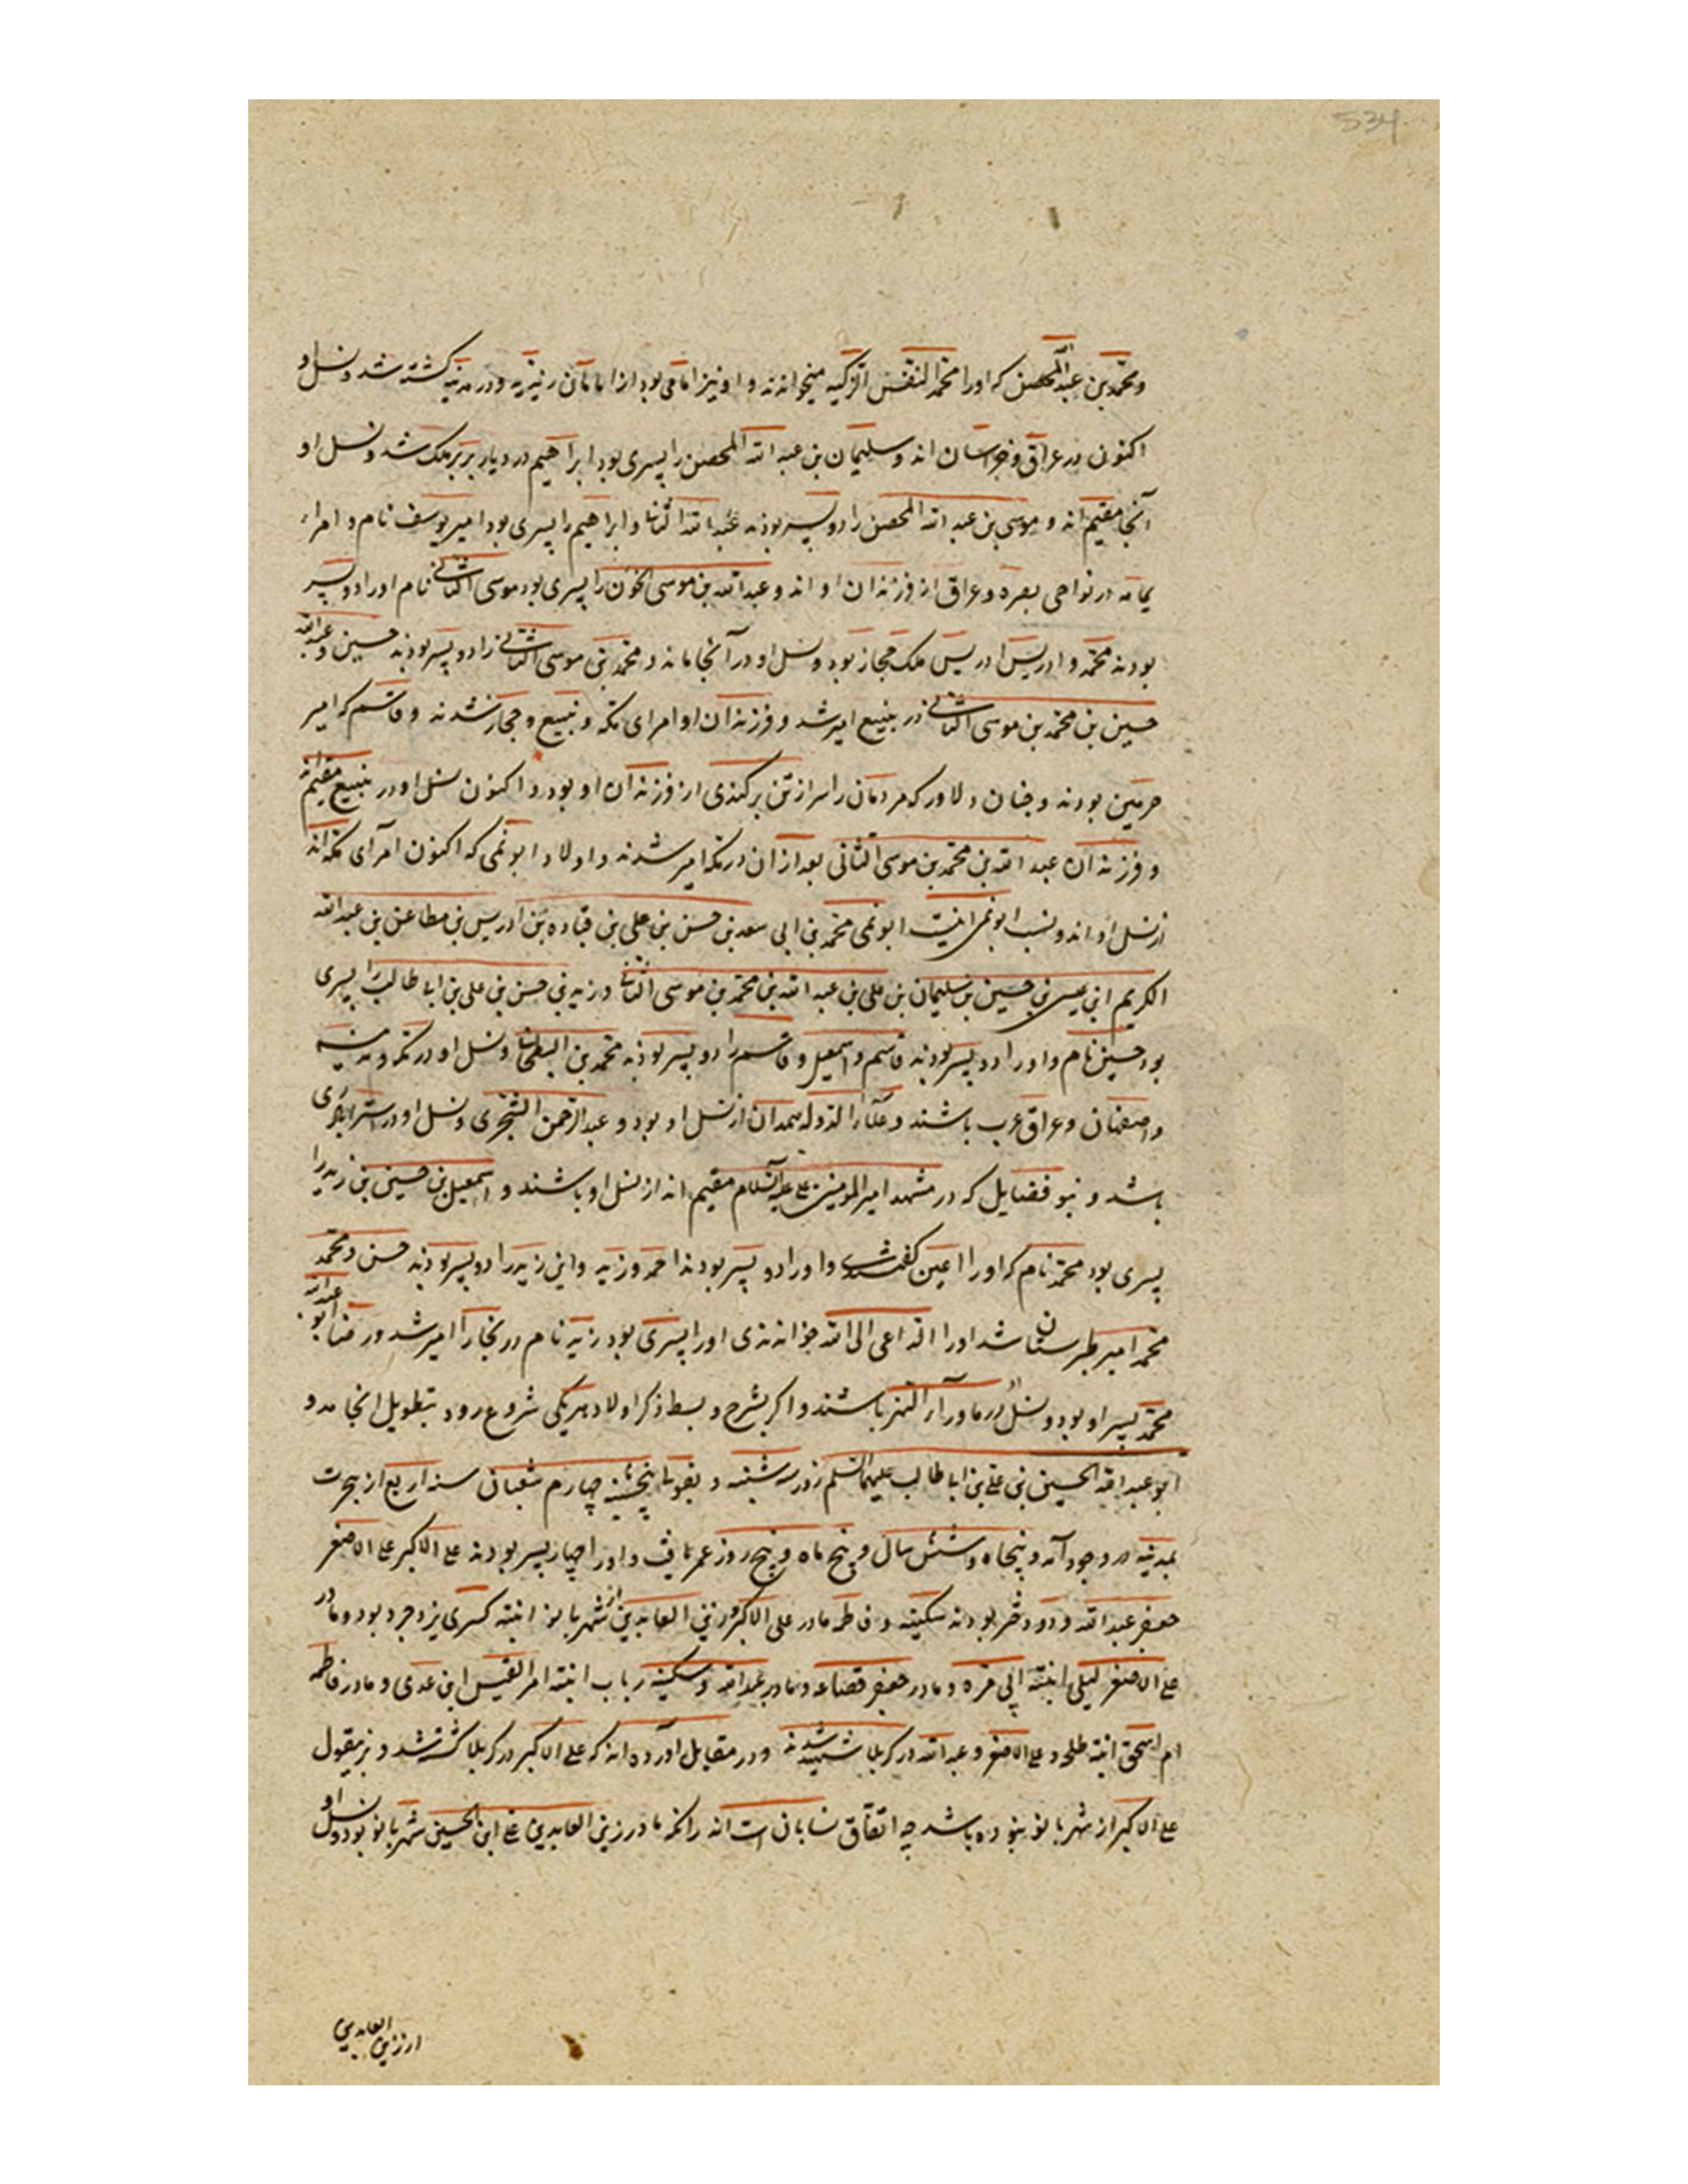 534
ومحمد بن عبدالله المحض که اورا محمد النفس الزکیه میخوانند و او نیز امامی بود از امامان زیدیه و در مدینه کشته شد و نسل او
اکنون در عراق و خراسان اند و سلیمان بن عبد الله المحض را پسری بود ابراهیم در دیار بربر ملک شد و نسل او
آنجا مقیم اند و موسی بن عبد الله المحض را دو پسر بودند عبد الله الثانی و ابراهیم را پسری بود امیر یوسف نام و امراء
یمامه در نواحی بصره و عراق از فرزندان او اند و عبد الله بن موسی الجون را پسری بود موسی الثانی نام اورا دو پسر
بودند محمد و ادریس ادریس ملک حجاز بود و نسل او در آنجا ماند و محمد بن موسی الثانی را دو پسر بودند حسین و عبدالله
حسین بن محمد بن موسی الثانی در ینبیع امیر شد و فرزندان او امرای مکه و ینبیع و حجاز شدند و قاسم که امیر
حرمین بودند و چنان دلاور که مردمان را سر از تن برکندی از فرزندان او بود و اکنون نسل او در ینبیع مقیم اند
و فرزندان عبد الله بن محمد بن موسی الثانی بعد از ان در مکه امیر شدند و اولاد ابو نمی که اکنون امرای مکه اند
از نسل او اند و نسب ابو نمی اینست ابو نمی محمد بن ابی سعد بن حسن بن علی بن قتاده بن ادریس بن مطاعن بن عبد الله
الکریم ابن عیسی بن حسین بن سلیمان بن علی بن عبد الله بن محمد بن موسی الثانی و زید بن حسن بن علی بن ابا طالب را پسری
بود حسین نام و اورا دو پسر بودند قاسم و اسمعیل و قاسم را دو پسر بودند محمد بن البطحانی و نسل او در مکه و مدینه
و اصفهان و عراق عرب باشند و علاء الدوله همدان از نسل او بود و عبد الرحمن الشجری و نسل او در ری
باشد و نبو فضایل که در مشهد امیر المومنین علی علیه السلام مقیم اند از نسل او باشند و اسمعیل بن حسین بن زید را
پسری بود محمد نام که اورا اعین گفتندی و اورا دو پسر بودند احمد و زید و این زید را دو پسر بودند حسن و محمد
محمد امیر طبرستان شد اورا الداعی الی الله خواندندی اورا پسری بود زید نام در بخارا امیر شد و رضا ابو عبدالله
محمد پسر او بود و نسل او در ماورآء النهر باشند و اگر بشرح و بسط ذکر اولاد هر یکی شروع رود بتطویل انجامد و
ابو عبد الله الحسین بن علی بن ابا طالب علیهما السلم روز سه شنبه و بقولی پنجشنبه چهارم شعبان سنه اربع از هجرت
بمدینه در وجود آمد و پنجاه و شش سال و پنج ماه و پنج روز عمر یافت و اورا چهار پسر بودند علی الاکبر علی الاصغر
جعفر عبد الله و دو دختر بودند سکینه و فاطمه مادر علی الاکبر و زین العابدین از شهربانو ابنته کسری یزدجرد بود و مادر
علی الاصغر لیلی ابنته ابی مره و مادر جعفر قضاعه و مادر عبد الله و سکینه رباب ابنته امر القیس ابن عدی و مادر فاطمه
ام اسحق ابنته طلحه و علی الاصغر و عبد الله در کربلا شهید شدند و در مقابل آورده اند که علی الاکبر در کربلا کشته شد و بر مقول
علی الاکبر از شهربانو بنوده باشد چه اتفاق نسابان است انه رانکه مادر زین العابدین علی ابن الحسین شهربانو بود و نسل او
از زین العابدین